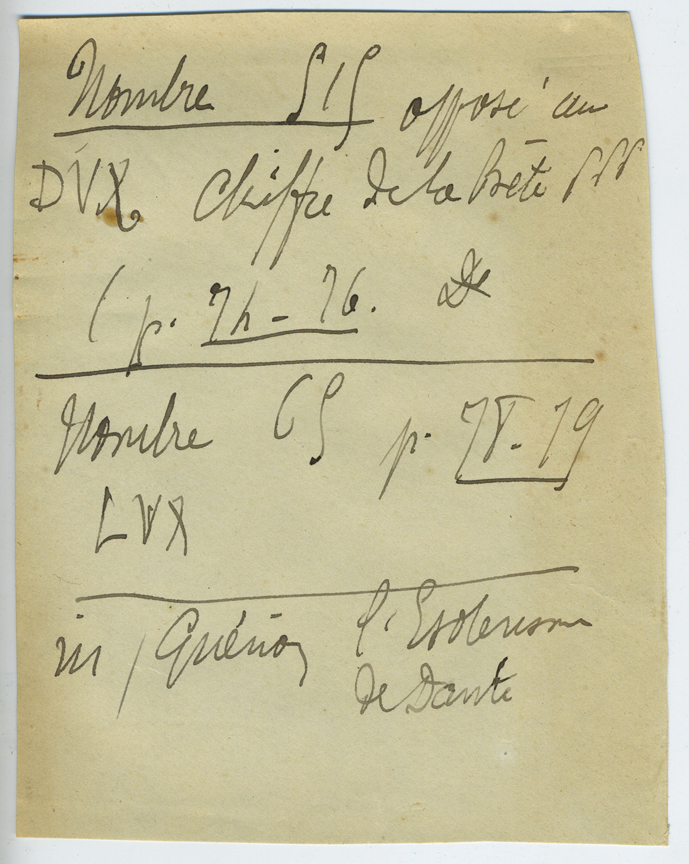 Nombre 515 opposé au
DVX chiffre de la Bête 666
( p. 74 - 76.
Nombre 65 p. 78 - 79
LVX
in / Guénon l'Esoterisme
de Dante